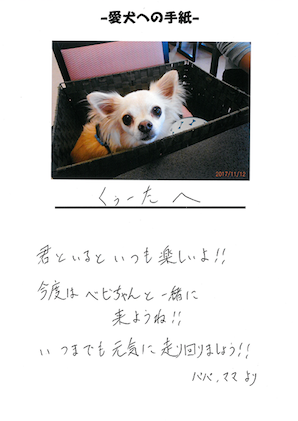 -愛犬への手紙-
2017/11/12
くぅーた へ
君といるといつも楽しいよ!!
今度は ベビちゃんと一緒に
来ようね!!
いつまでも元気に走り回りましょう!!
パパ、ママより